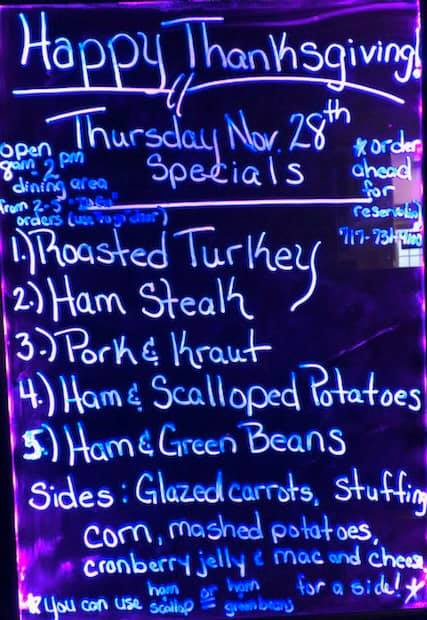 Happy Thanksgiving!
Thursday Nov. 28th
Specials
open
8am-2pm
dining area
from 2-3
orders
* order
ahead
for
717-73
1.) Roasted Turkey
2.) Ham Steak
3.) Pork & Kraut
4.) Ham & Scalloped Potatoes
5.) Ham & Green Beans
Sides: Glazed carrots, stuffing
corn, mashed potatoes,
cranberry jelly & mac and cheese
* you can use ham scallop or ham greenbeans for a side! *